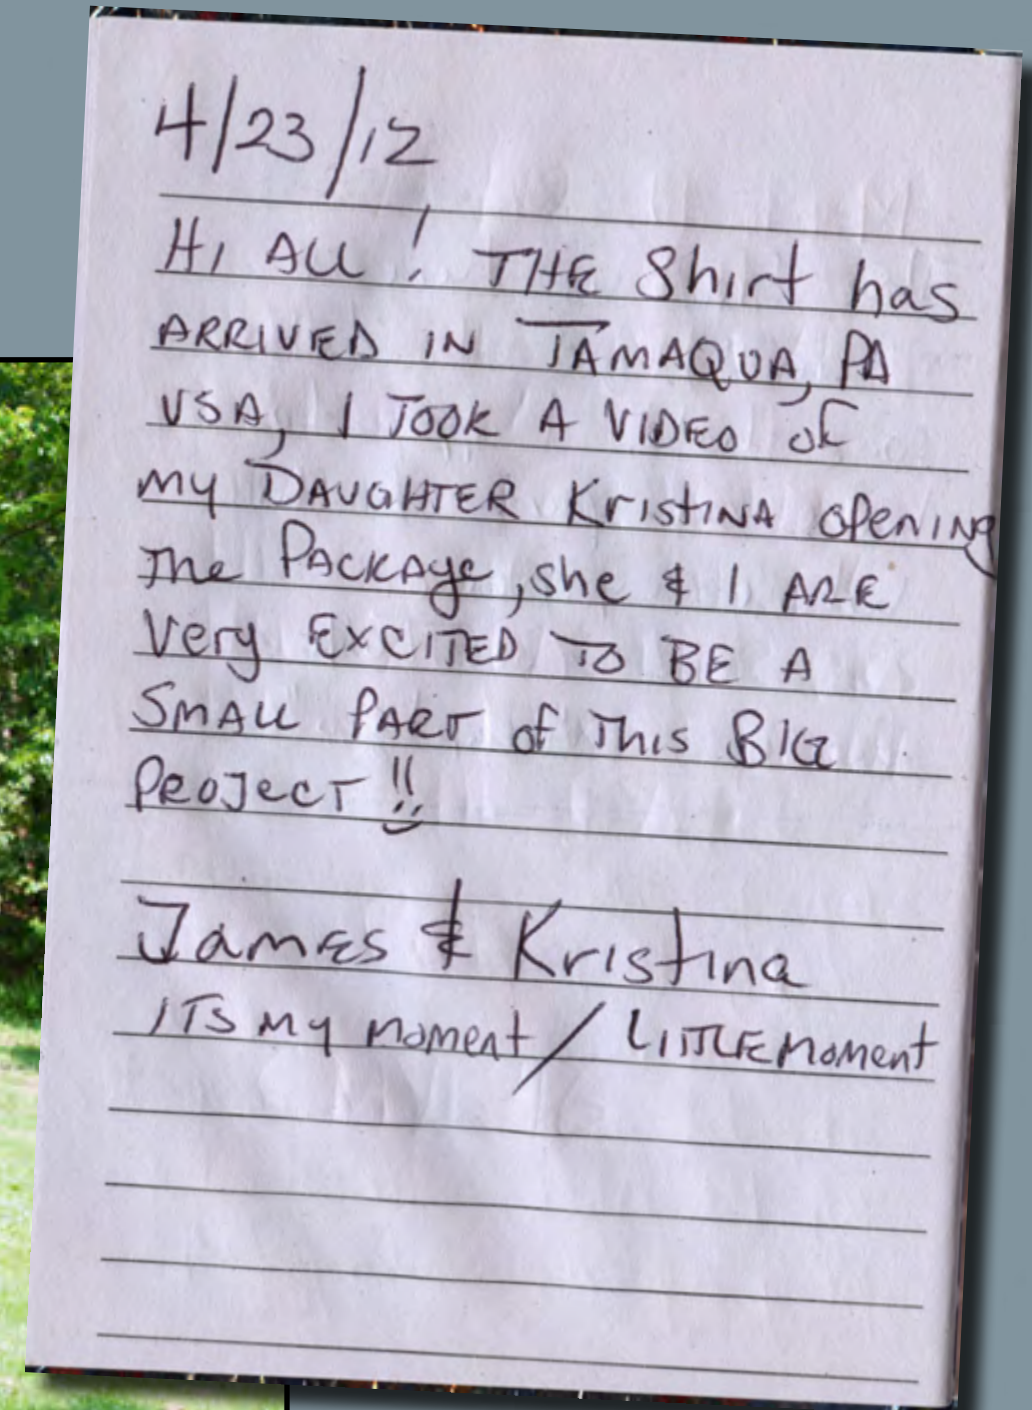 4/23/12
Hi ALL! THE Shirt has
ARRIVED IN TAMAQUA, PA
USA, I TOOK A VIDEO of
my DAUGHTER KristiNA opening
The PACKAge, she & I ARE
Very EXCITED TO BE A
SMALL PART of This BIG
PROJECT!!
James & Kristina
ITS my moment / LITTLEMoment